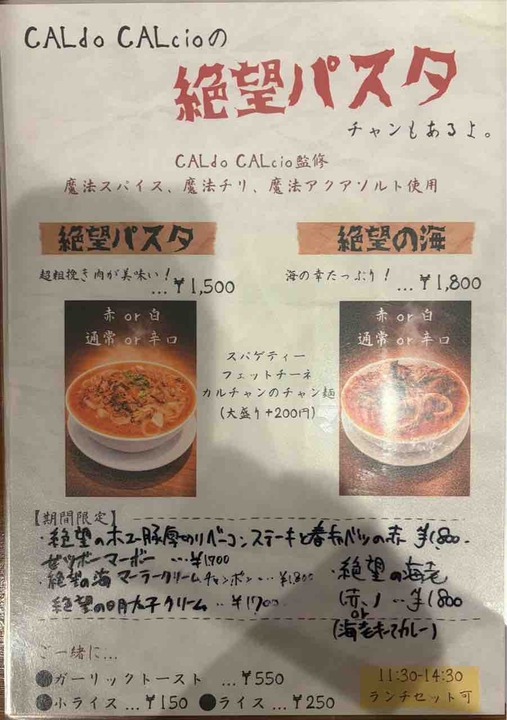 CALdo CALcioの
絶望パスタ
チャンもあるよ。
CALdo CALcio監修
魔法スパイス、魔法チリ、魔法アクアソルト使用
絶望パスタ
超粗挽き肉が美味い！
...￥1,500
赤 or 白
通常 or 辛口
絶望の海
海の幸たっぷり！
...￥1,800
赤 or 白
通常 or 辛口
スパゲティー
フェットチーネ
カルチャンのチャン麺
(大盛り+200円)
【期間限定】
・絶望のホエー豚厚切りベーコンステーキと春キャベツの赤 ￥1,800-
ゼツボーマーボー …￥1700
・絶望の海マーラークリームチャンポン…￥1,800
絶望の明太子クリーム ‥￥1700-
・絶望の海老
(赤 ) ‥￥1,800
or
(海老キーマカレー)
ご一緒に...
●ガーリックトースト ...￥550
●小ライス ...￥150 ●ライス ...￥250
11:30-14:30
ランチセット可